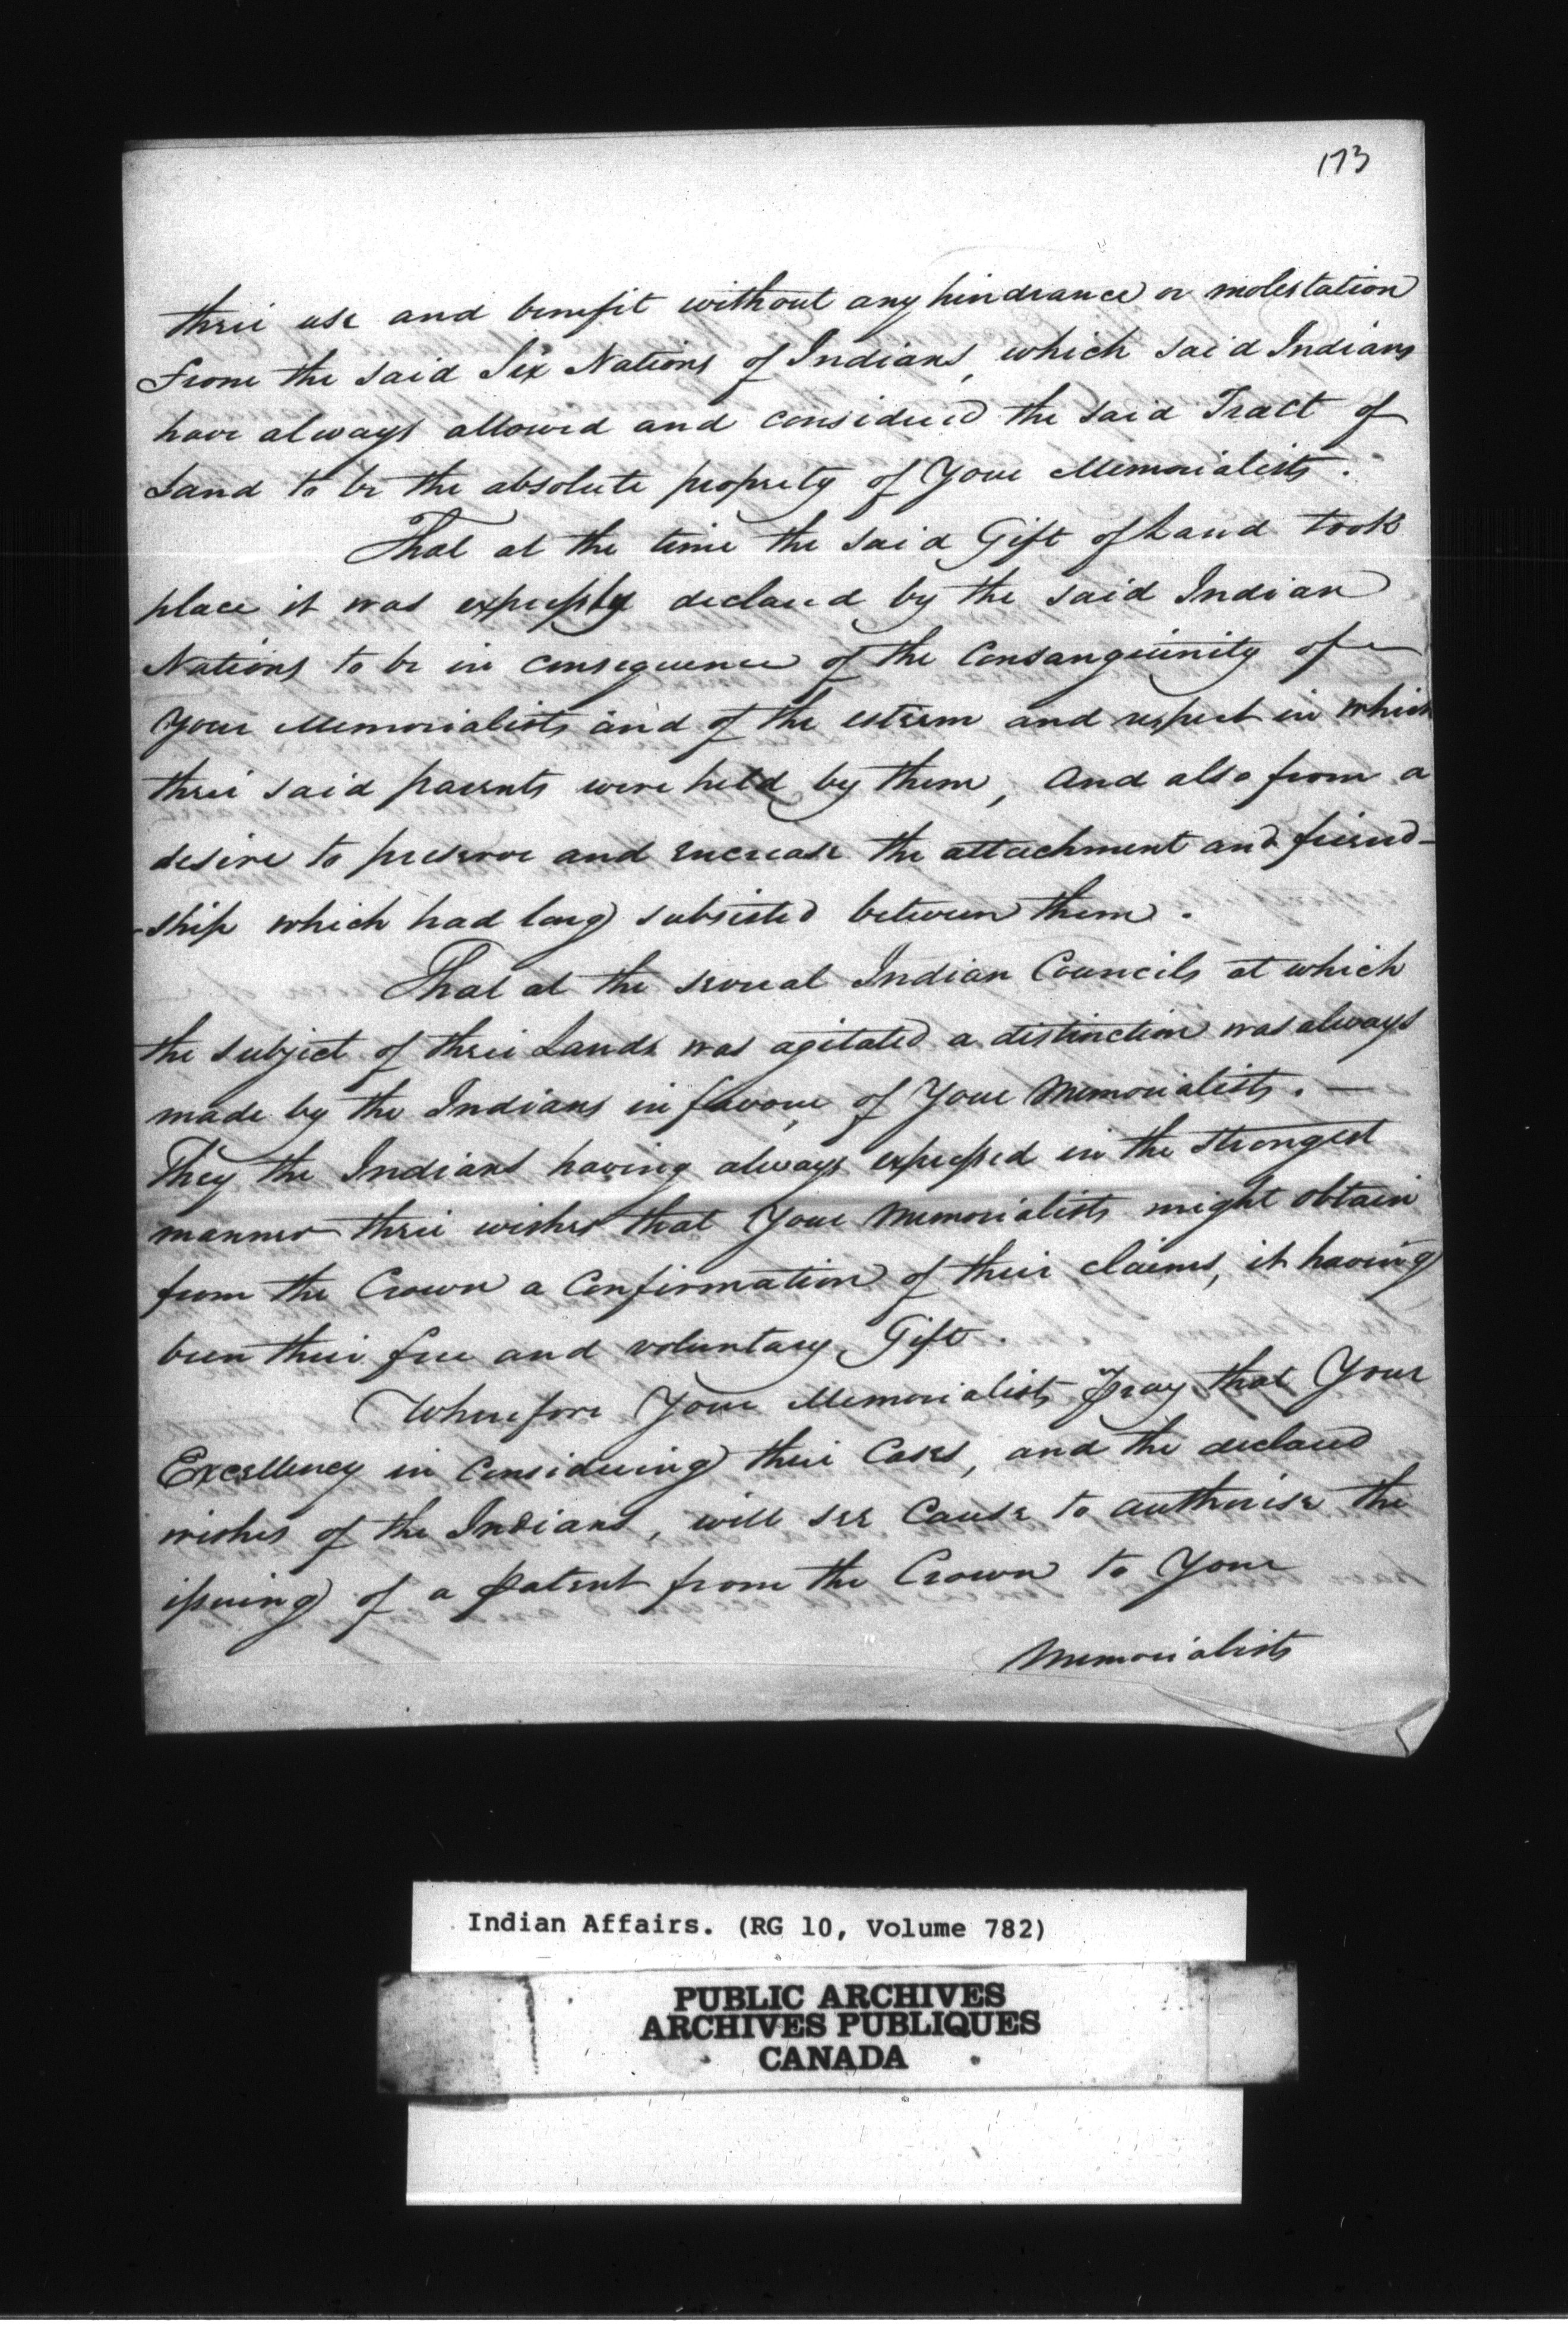 173
their use and benefit without any hindrance or molestation
from the said Six Nations of Indians, which said Indians
have always allowed and considered the said Tract of
Land to be the absolute property of Your Memorialists.
That at the time the said Gift of Land took
place it was expressly declared by the said Indian
Nations to be in consequence of the Consanguinity of
Your Memorialists and of the esteem and respect in which
their said parents were held by them, And also from a
desire to preserve and encrease the attachment and friend-
-ship which had long subsisted between them.
That at the several Indian Councils at which
the subject of their Lands was agitated a distinction was always
made by the Indians in favour of Your Memorialists. —
They the Indians having always expressed in the strongest
manner their wishes that Your Memorialists might obtain
from the Crown a Confirmation of their claims, it having
been their free and voluntary Gift.
Wherefore Your Memorialists Pray that Your
Excellency in Considering their Cases, and the declared
wishes of the Indians, will see Cause to authorise the
issuing of a Patent from the Crown to Your
Memorialists
Indian Affairs. (RG 10, Volume 782)
PUBLIC ARCHIVES
ARCHIVES PUBLIQUES
CANADA